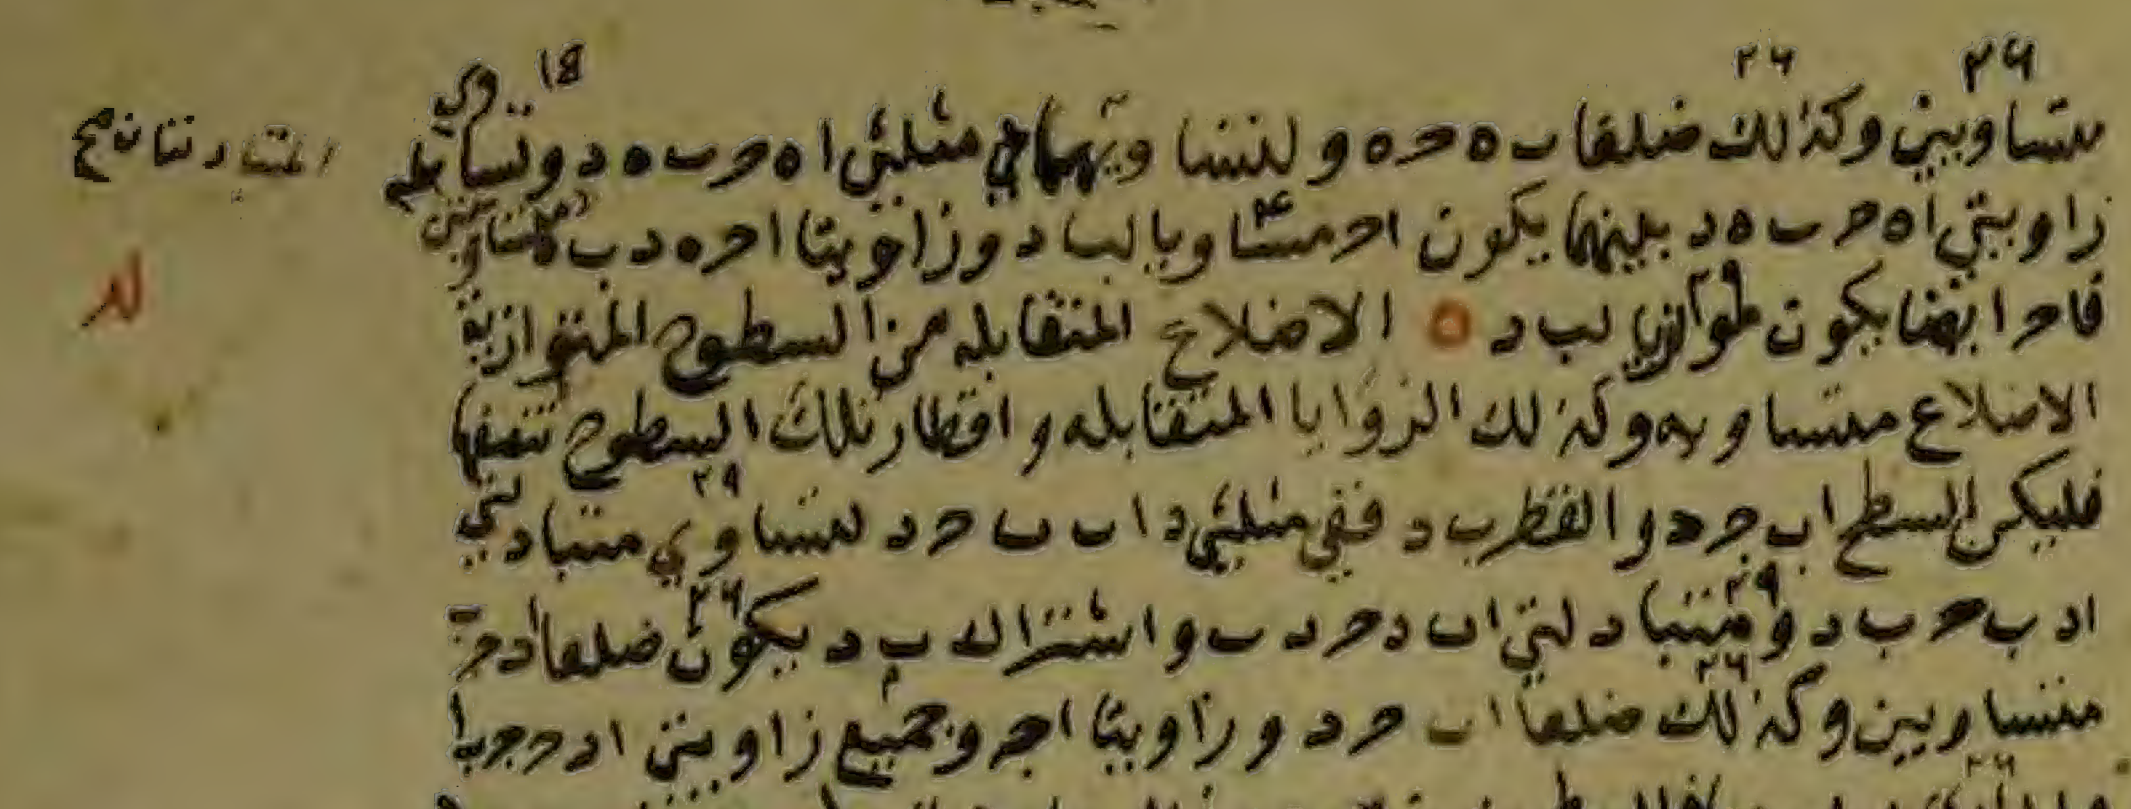 ٢٦ ٢٦ ١٨
متساويين وكذلك ضلعا ب ه ح ه ولتساويهما في مثلثي ا ه ح ب ه د وتساوي
زاويتي ا ه ح ب ه د بينهما يكون ا ح مساويا لب د وزاويتا ا ح ه د ب ه متساويتين
فا ح ايضا يكون موازيا لب د ه الاضلاع المتقابله من السطوح المتوازية
الاضلاع متساويه وكذلك الزوايا المتقابله واقطار تلك السطوح تنصفها
فليكن السطح ا ب ج د والقطر ب د ففي مثلثي د ا ب ب ح د لتساوي متبادلتي
٢٩
ا د ب ح ب د ومتبادلتي ا ب د ح د ب واشتراك ب د يكون ضلعا ا د ح ب
٢٩ ٢٦
متساويين وكذلك ضلعا ا ب ح د وزاويتا ا ج وجميع زاويتي ا د ح ج ب ا
٢٦
المتبادلتان صح
لد